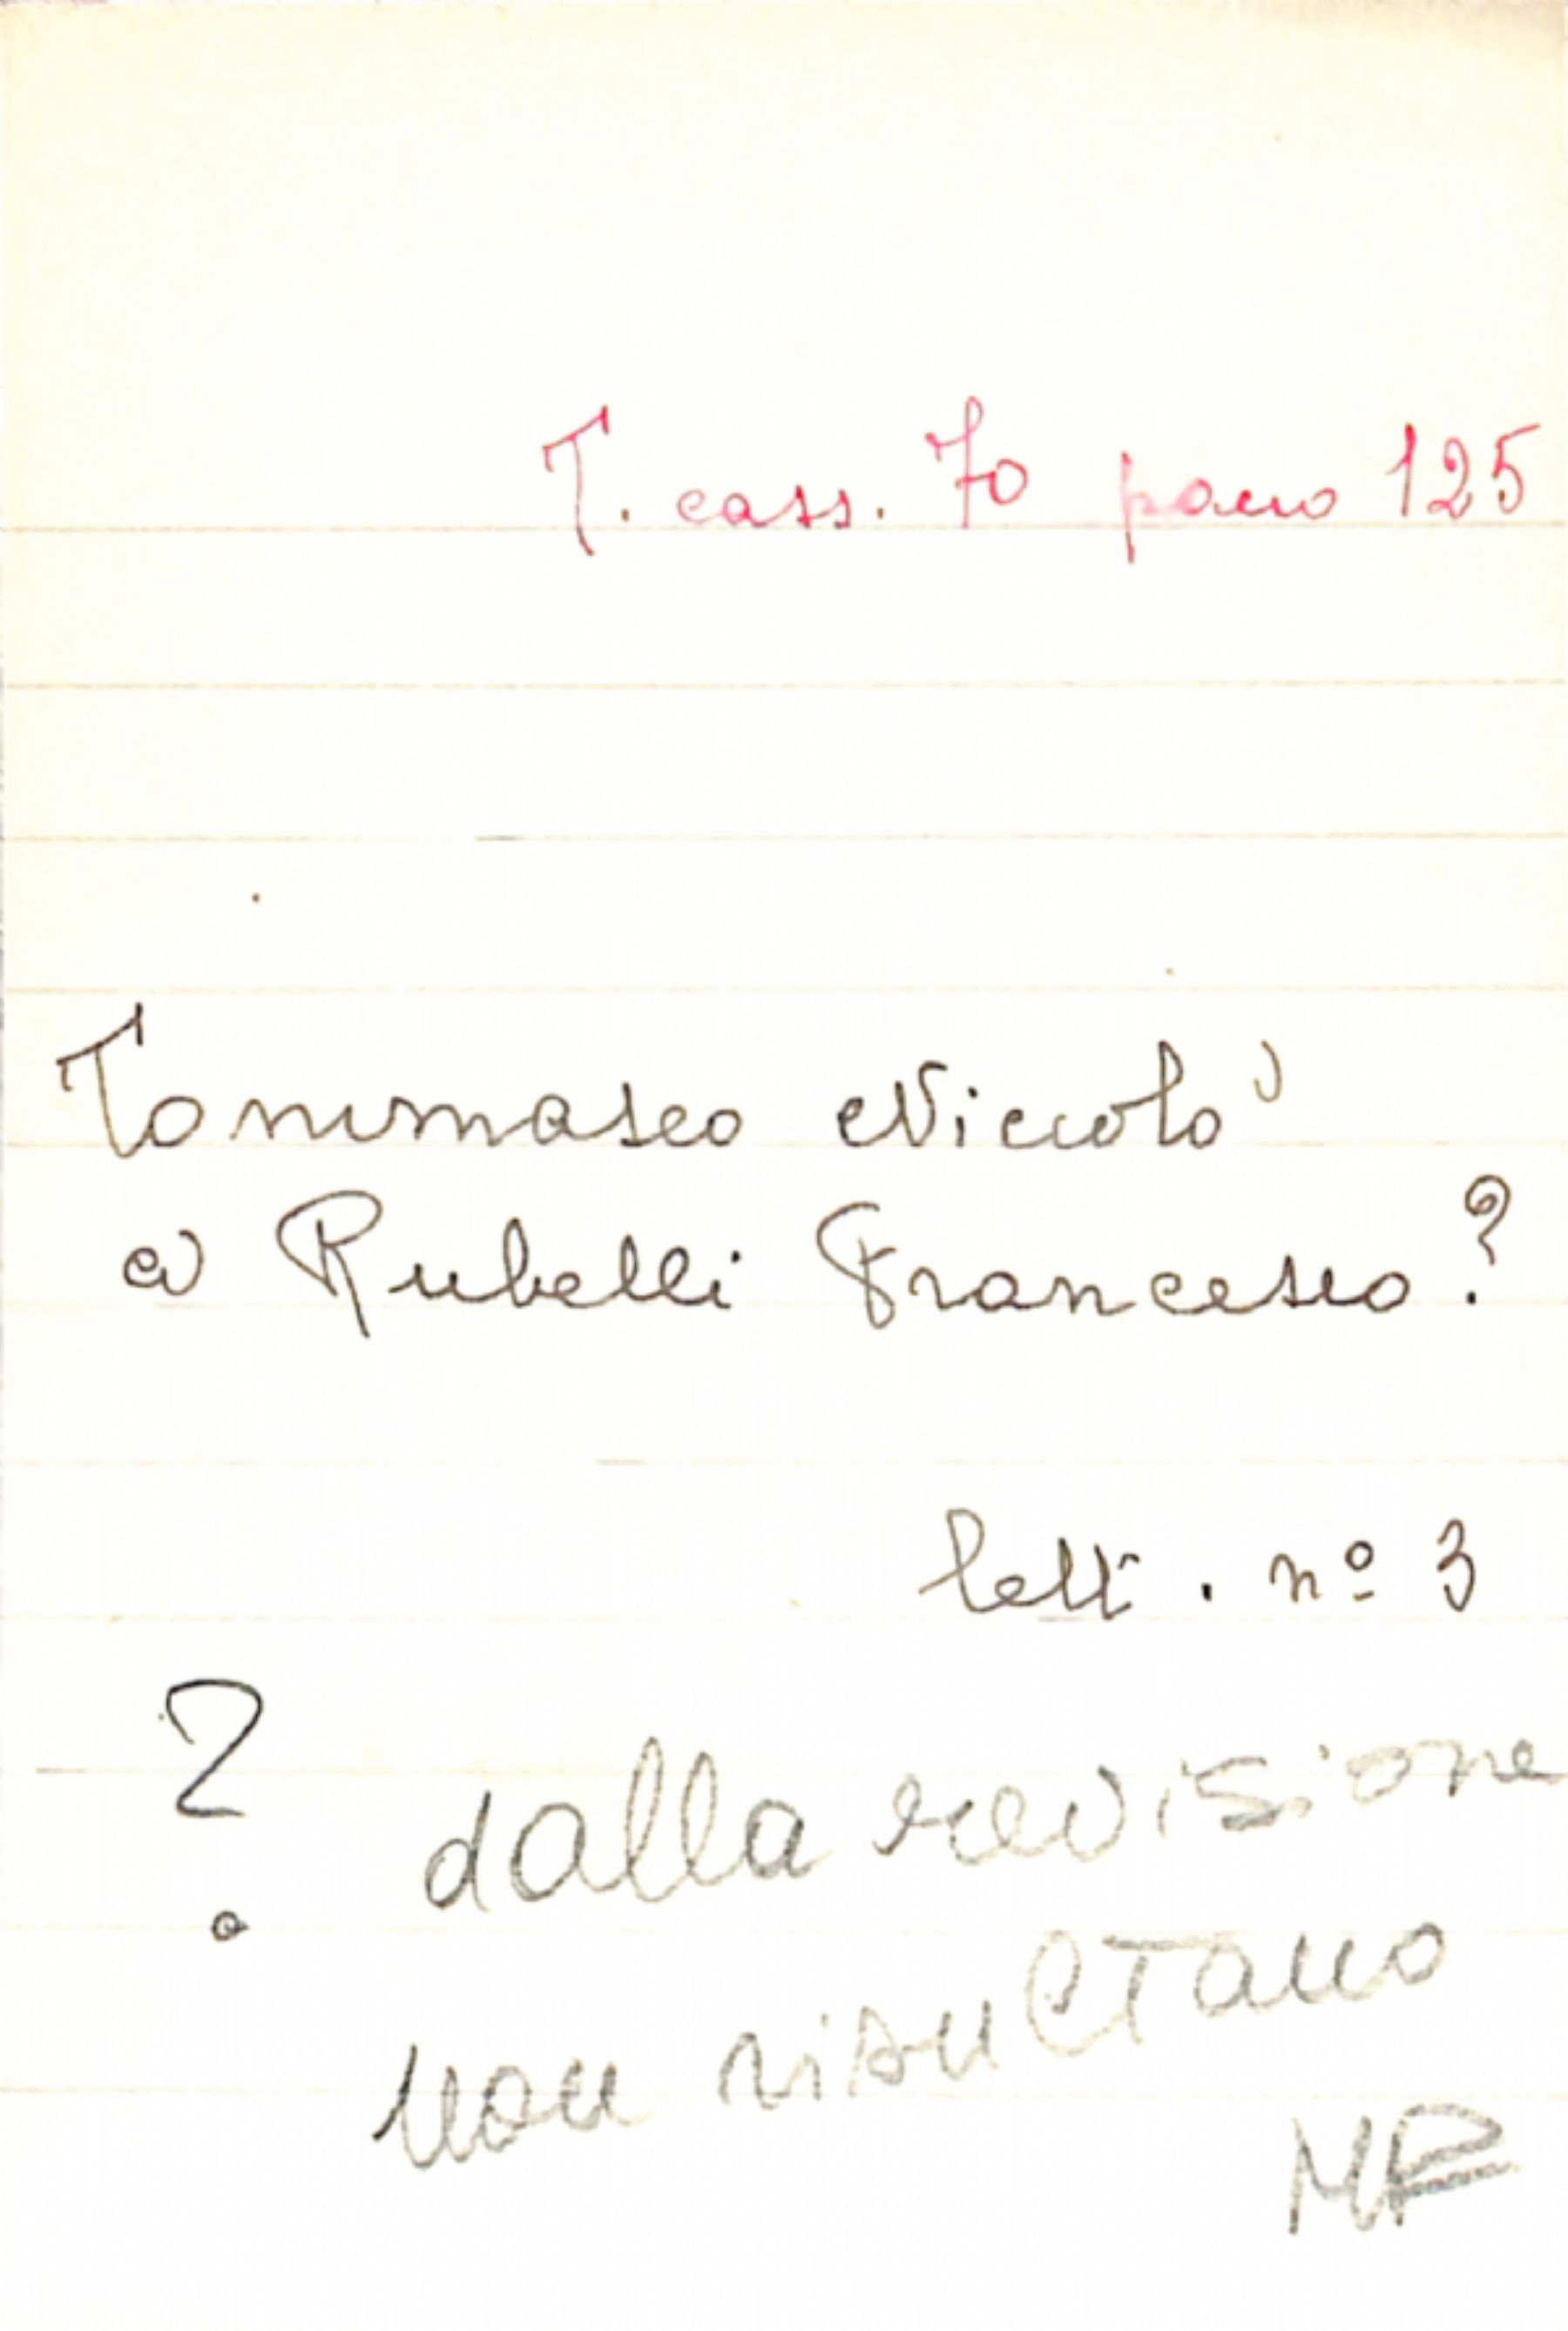 T. cass. 70 pacco 125
Tommaseo Niccolò
a Rubelli Francesco?
lett. nº 3
? dalla revisione
non risultano
MP